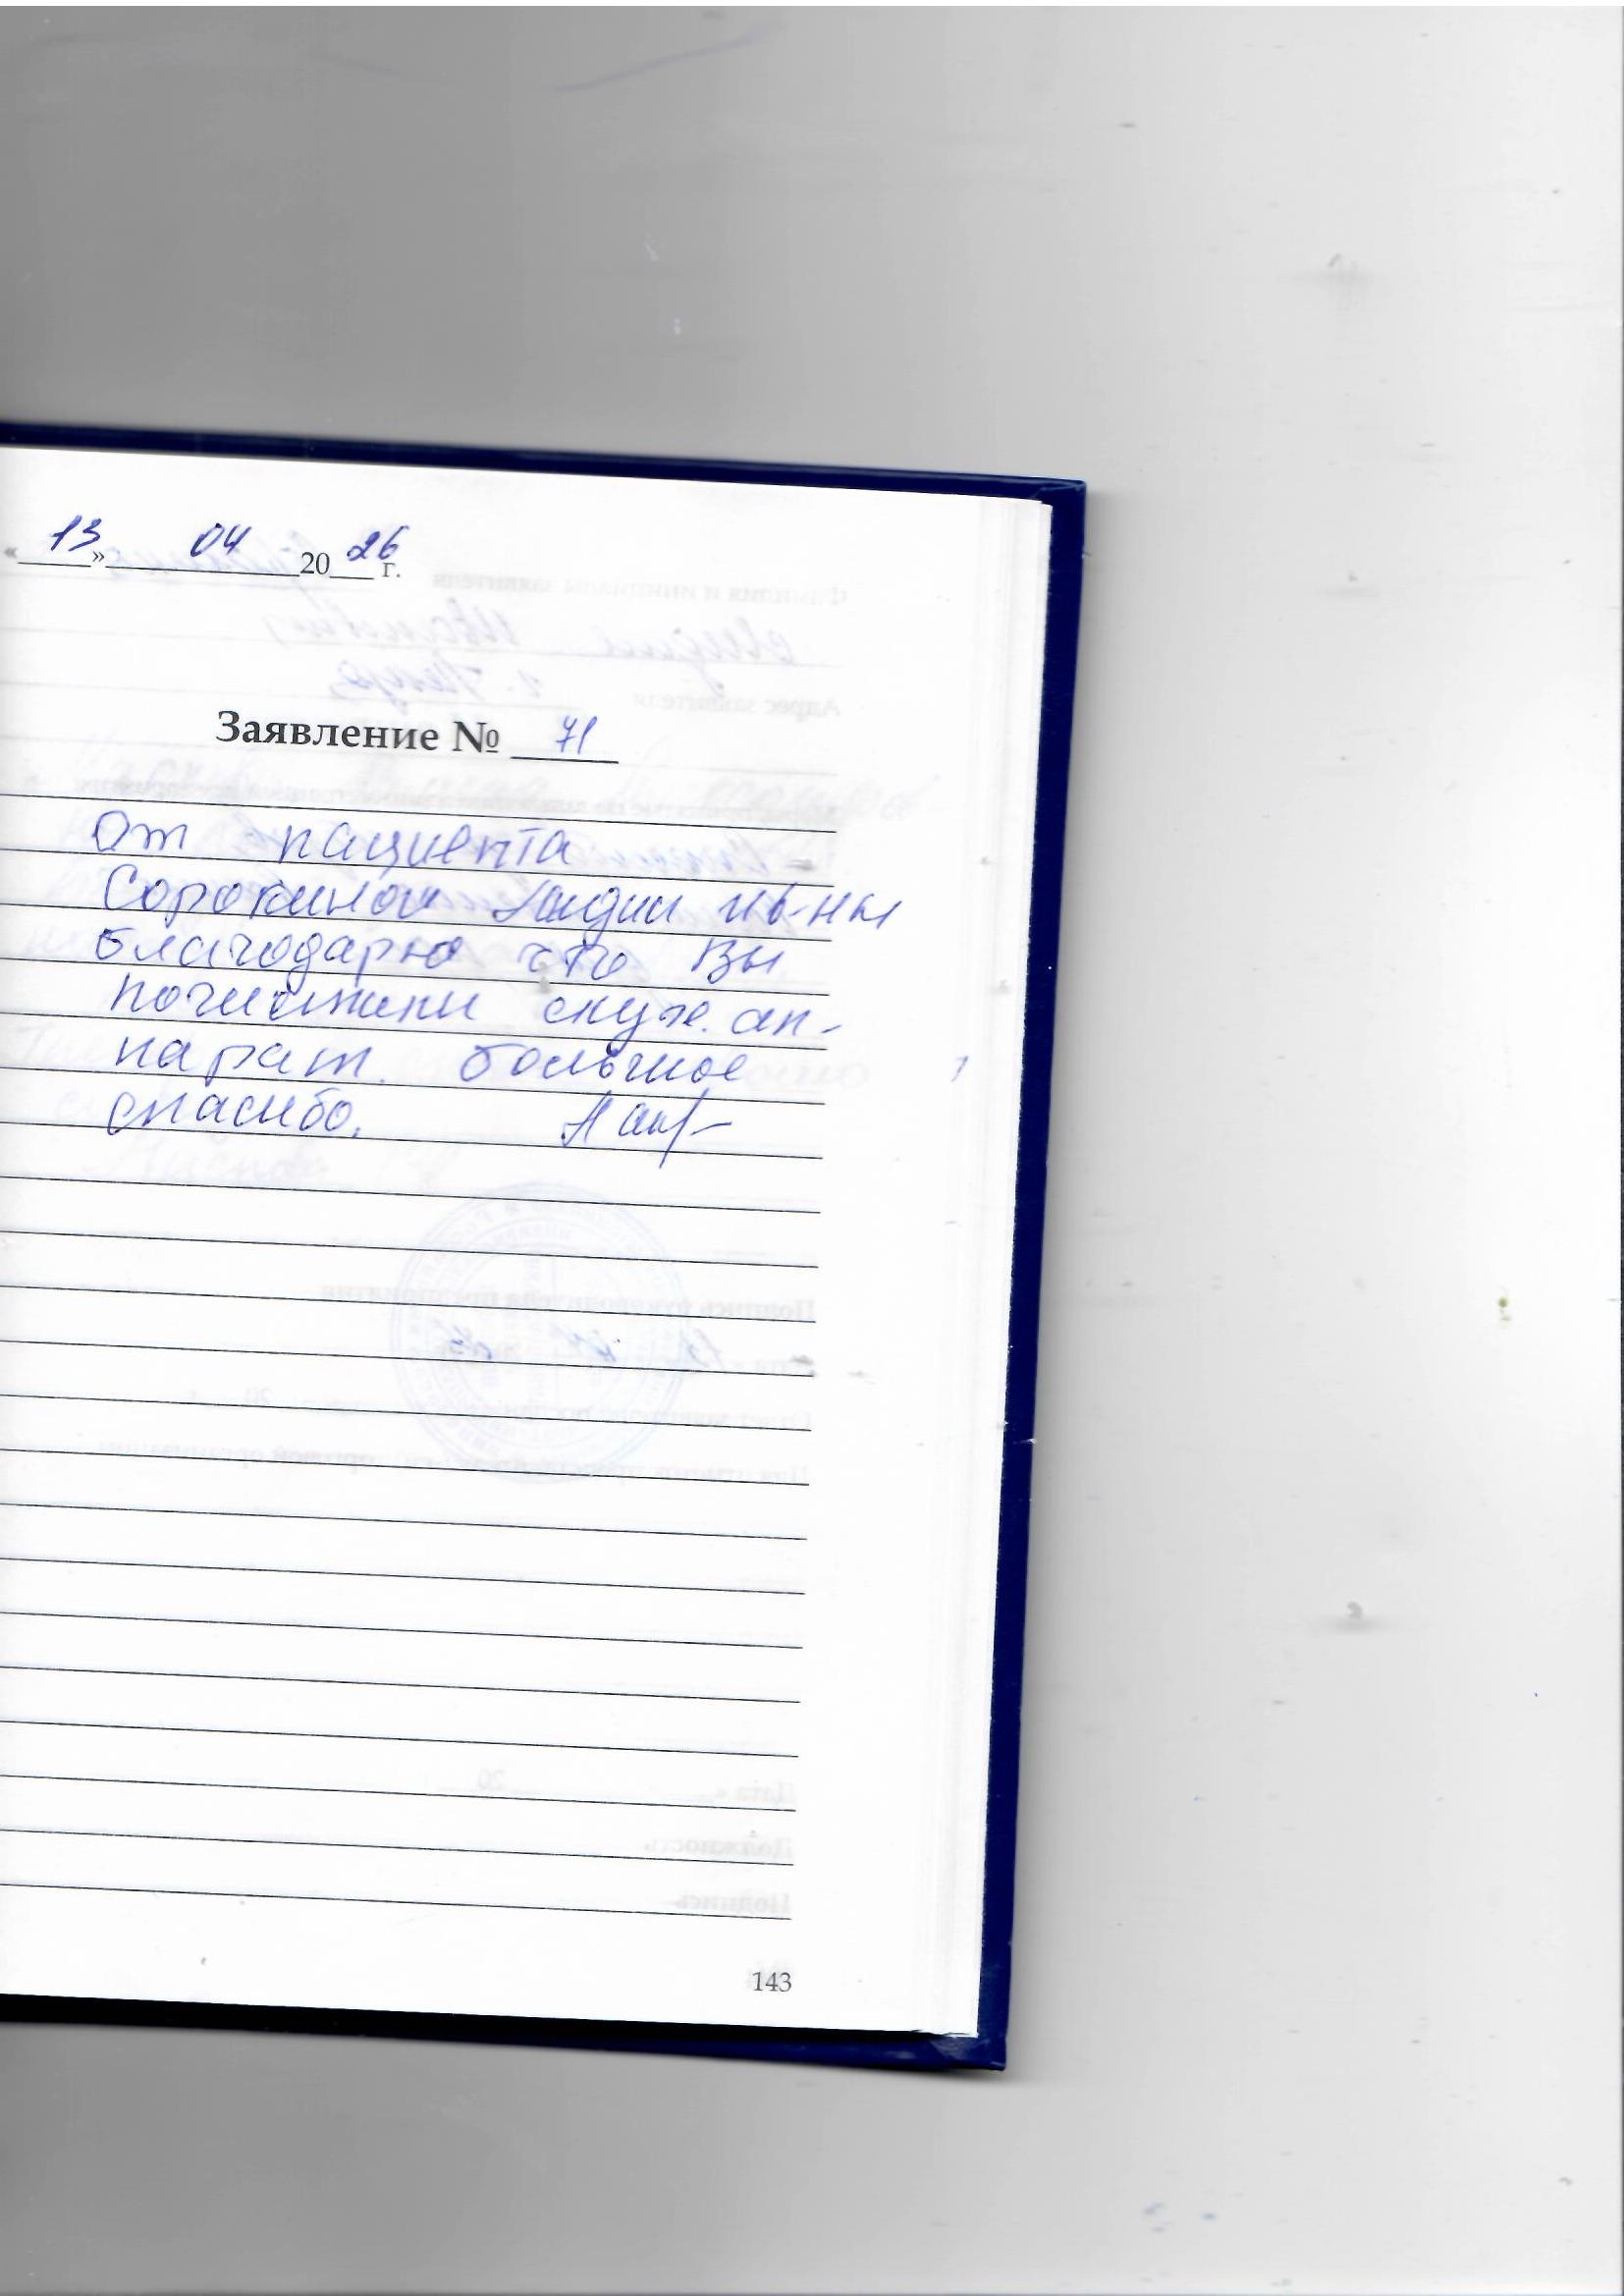 « 13 » 04 20 26 г.
Заявление № 71
От пациента
Сорокиной Лидии Ив-ны
благодарю что Вы
почистили слух. ап-
парат. большое
спасибо.
143